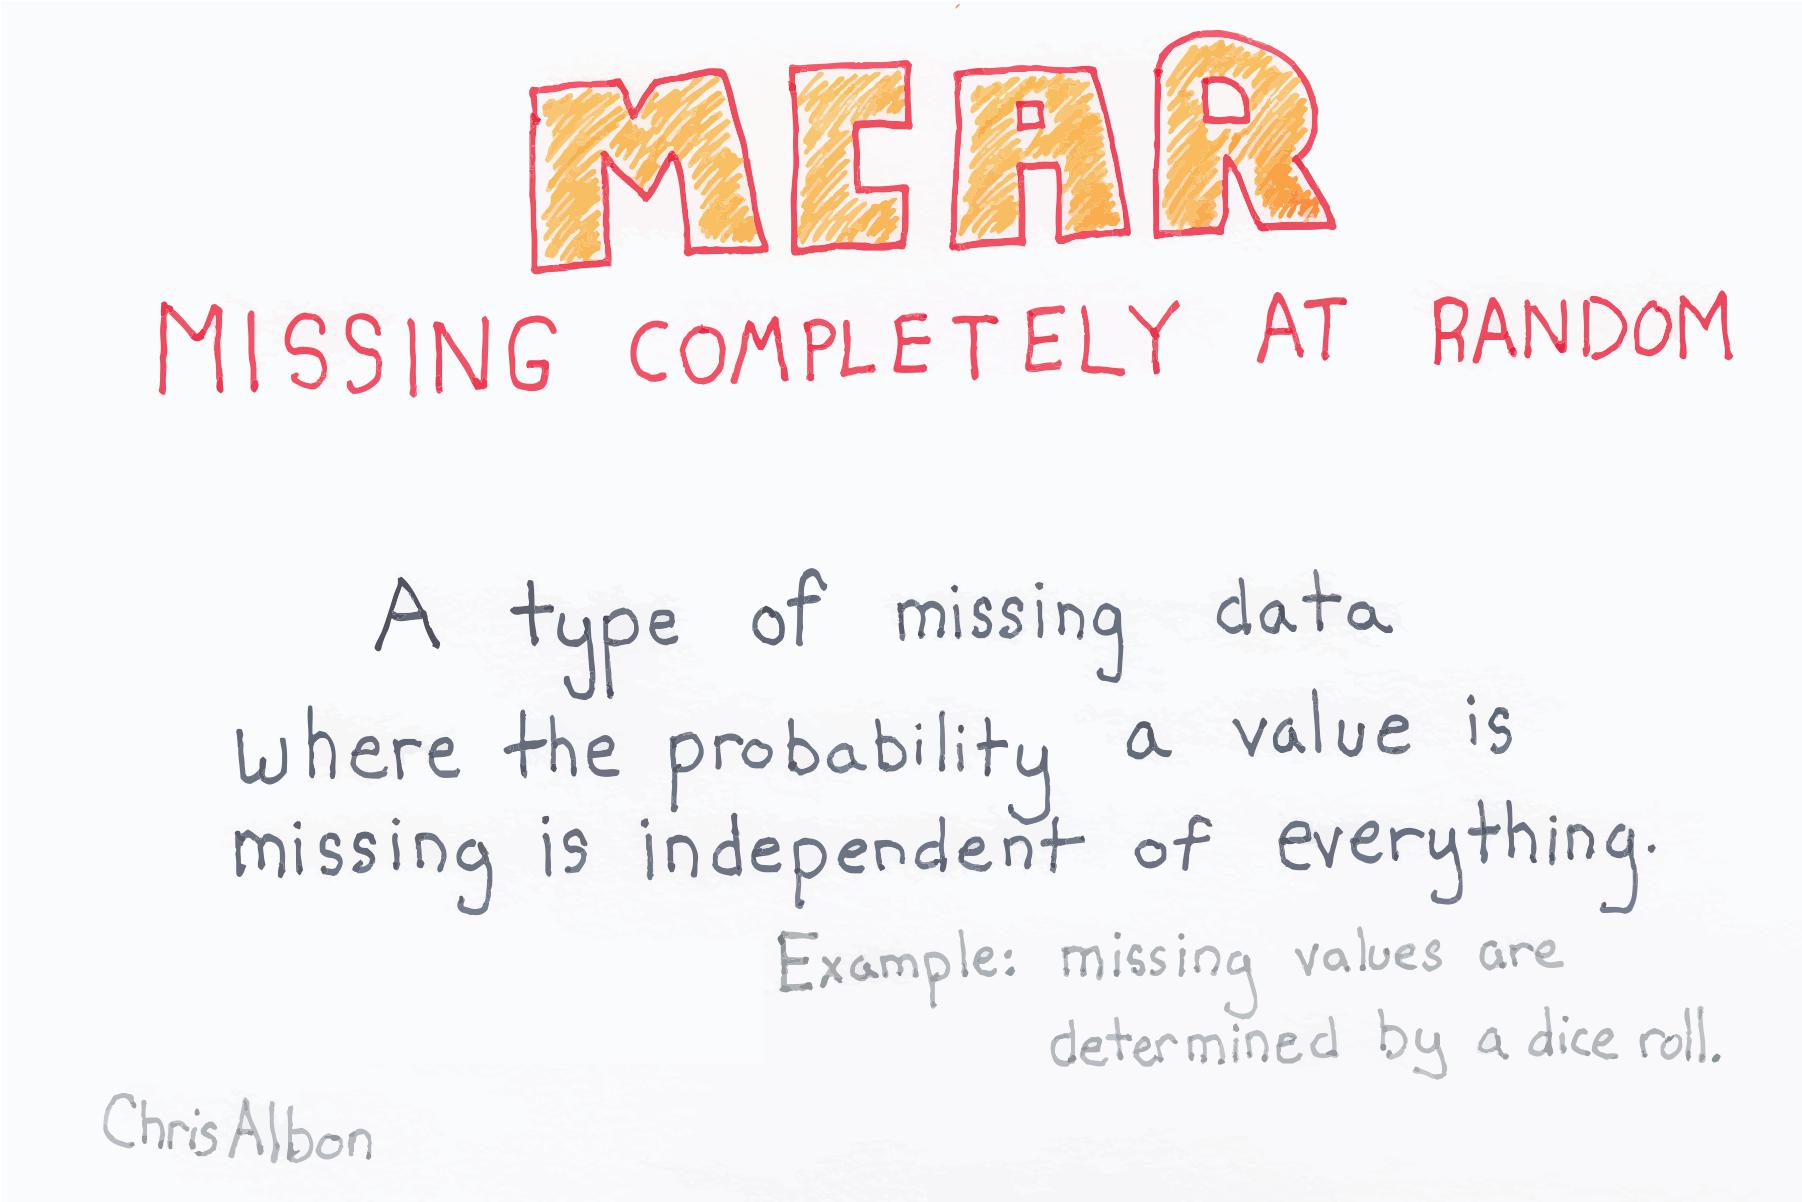 MCAR
MISSING COMPLETELY AT RANDOM
A type of missing data
where the probability a value is
missing is independent of everything.
Example: missing values are
determined by a dice roll.
Chris Albon